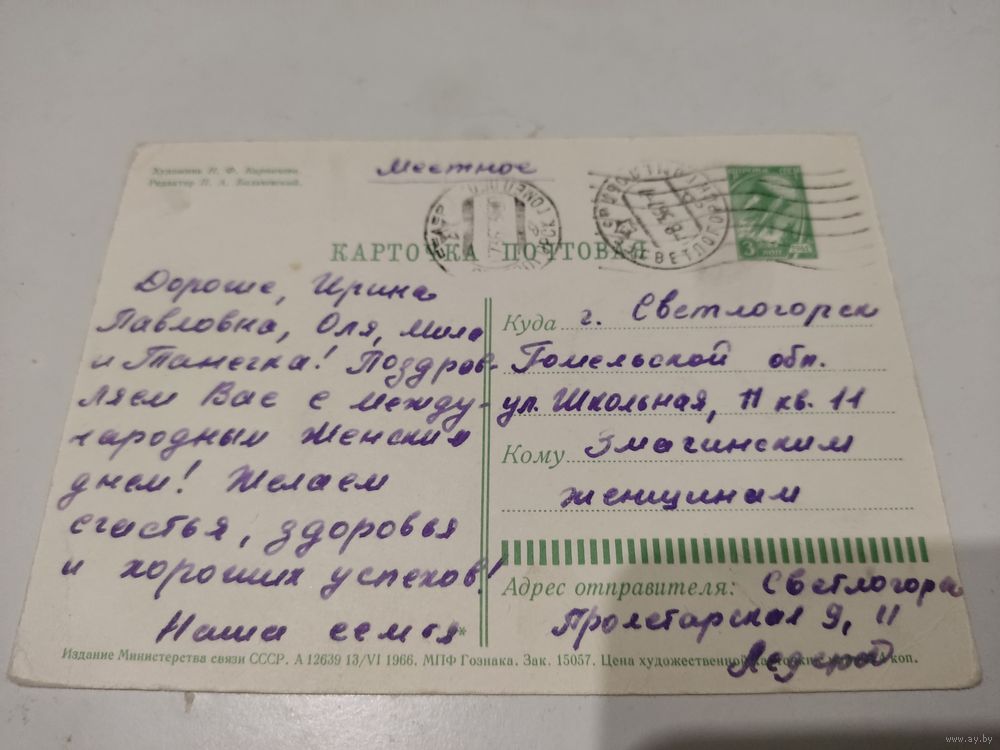 Художник П. Ф.
Редактор П. А.
Местное
КАРТОЧКА ПОЧТОВАЯ
ПОЧТА СССР
3 коп
Дорогие, Ирина
Павловна, Оля, Мила
и Танечка! Поздрав-
ляем Вас с между-
народным Женским
днем! Желаем
счастья, здоровья
и хороших успехов!
Наша семья
Куда г. Светлогорск
Гомельской обл.
ул. Школьная, 11 кв. 11
Кому Змачинским
женщинам
Адрес отправителя: Светлогорск
Пролетарская 9, 11
Издание Министерства связи СССР. А 12639 13/VI 1966. МПФ Гознака. Зак. 15057. Цена художественной карточки коп.
www.ay.by